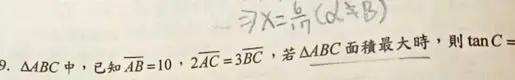 ⇒x=6/17 (α≠β)
9. ΔABC 中，已知 \overline{AB}=10，2\overline{AC}=3\overline{BC}，若ΔABC 面積最大時，則 tan C=